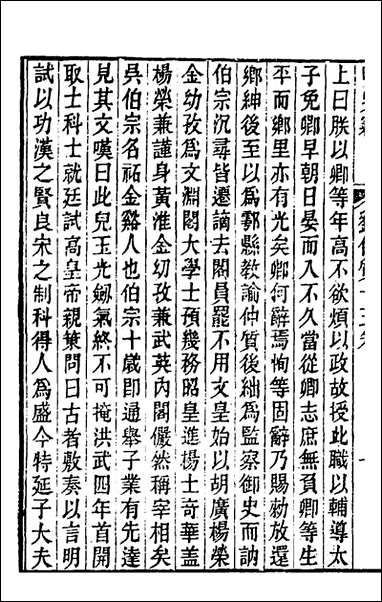 上曰朕以卿等年高不欲煩以政故授此職以輔導太
子免卿早朝日晏而入不久當從卿志庶無負卿等生
平而鄉里亦有光矣卿何辭焉恂等固辭乃賜勑放還
鄉紳後至以為鄠縣教諭仲質後絀為監察御史而訥
伯宗沉尋皆遷謫去閣員罷不用文皇始以胡廣楊榮
金幼孜為文淵閣大學士預幾務昭皇進楊士奇華盖
楊榮兼謹身黃淮金幼孜兼武英內閣儼然稱宰相矣
吳伯宗名祏金谿人也伯宗十歲即通舉子業有先達
見其文嘆曰此兒玉光劒氣終不可掩洪武四年首開
取士科士就廷試高皇帝親策問曰古者敷奏以言明
試以功漢之賢良宋之制科得人為盛今特延子大夫